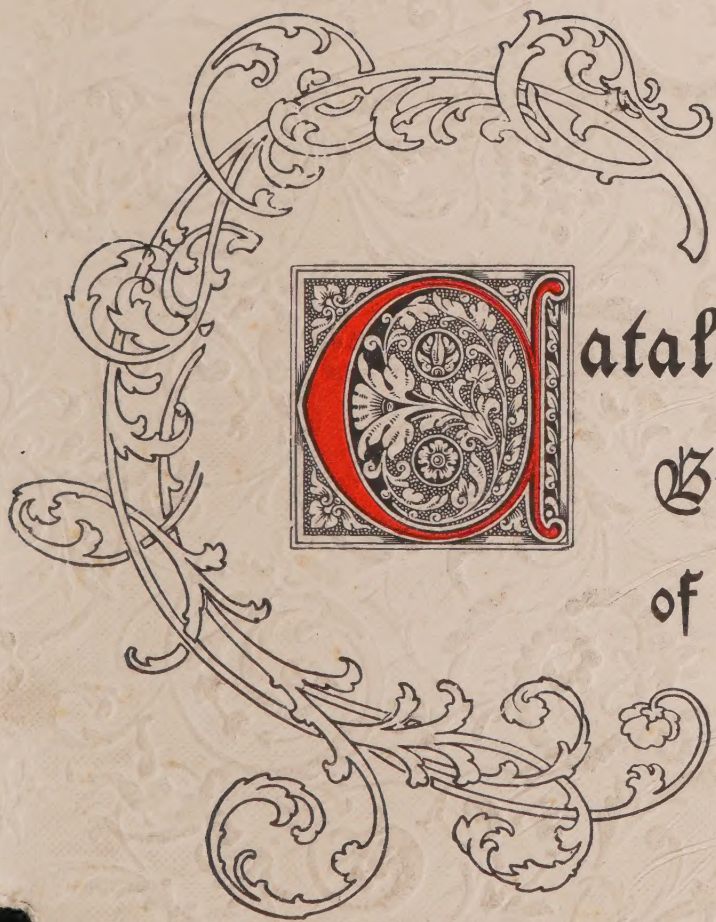 Catal
B
of